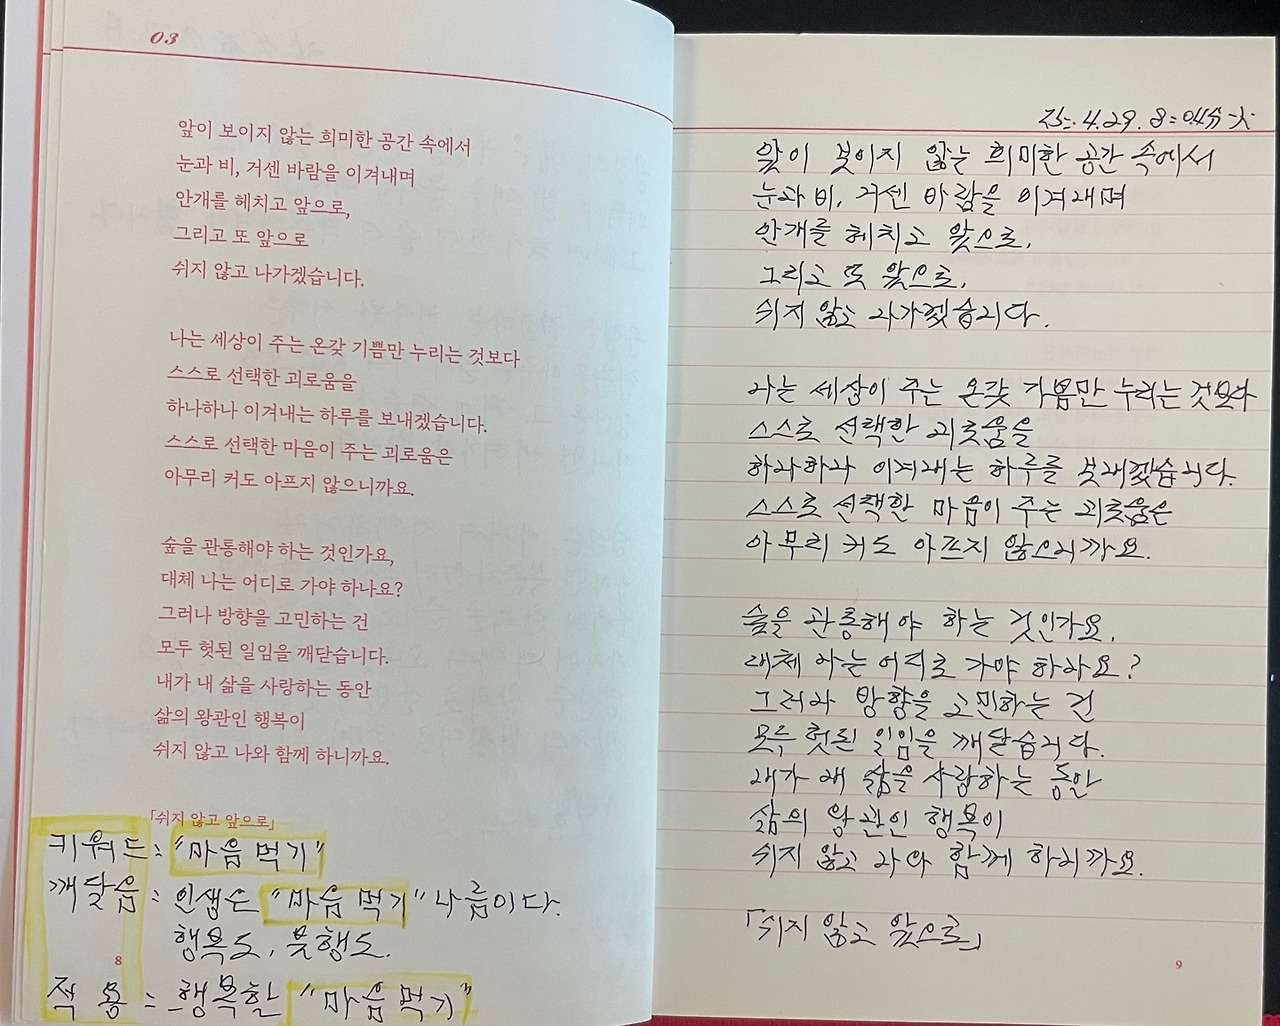 03
앞이 보이지 않는 희미한 공간 속에서
눈과 비, 거센 바람을 이겨내며
안개를 헤치고 앞으로,
그리고 또 앞으로
쉬지 않고 나가겠습니다.
나는 세상이 주는 온갖 기쁨만 누리는 것보다
스스로 선택한 괴로움을
하나하나 이겨내는 하루를 보내겠습니다.
스스로 선택한 마음이 주는 괴로움은
아무리 커도 아프지 않으니까요.
숲을 관통해야 하는 것인가요,
대체 나는 어디로 가야 하나요?
그러나 방향을 고민하는 건
모두 헛된 일임을 깨닫습니다.
내가 내 삶을 사랑하는 동안
삶의 왕관인 행복이
쉬지 않고 나와 함께 하니까요.
「쉬지 않고 앞으로」
키워드: "마음 먹기"
깨달음: 인생은 "마음 먹기" 나름이다.
행복도, 불행도.
8
적용: 행복할 "마음 먹기"
25. 4.29. 8:04分 火
앞이 보이지 않는 희미한 공간 속에서
눈과 비, 거센 바람을 이겨내며
안개를 헤치고 앞으로,
그리고 또 앞으로,
쉬지 않고 나가겠습니다.
나는 세상이 주는 온갖 기쁨만 누리는 것보다
스스로 선택한 괴로움을
하나하나 이겨내는 하루를 보내겠습니다.
스스로 선택한 마음이 주는 괴로움은
아무리 커도 아프지 않으니까요.
숲을 관통해야 하는 것인가요,
대체 나는 어디로 가야 하나요?
그러나 방향을 고민하는 건
모두 헛된 일임을 깨닫습니다.
내가 내 삶을 사랑하는 동안
삶의 왕관인 행복이
쉬지 않고 나와 함께 하니까요.
「쉬지 않고 앞으로」
9